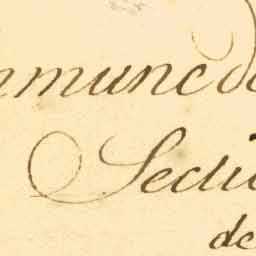 mmune de
Secti
de